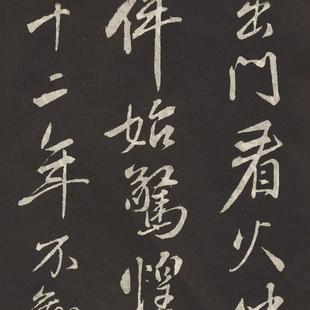 出門看火伴
伴始驚惶
十二年不知